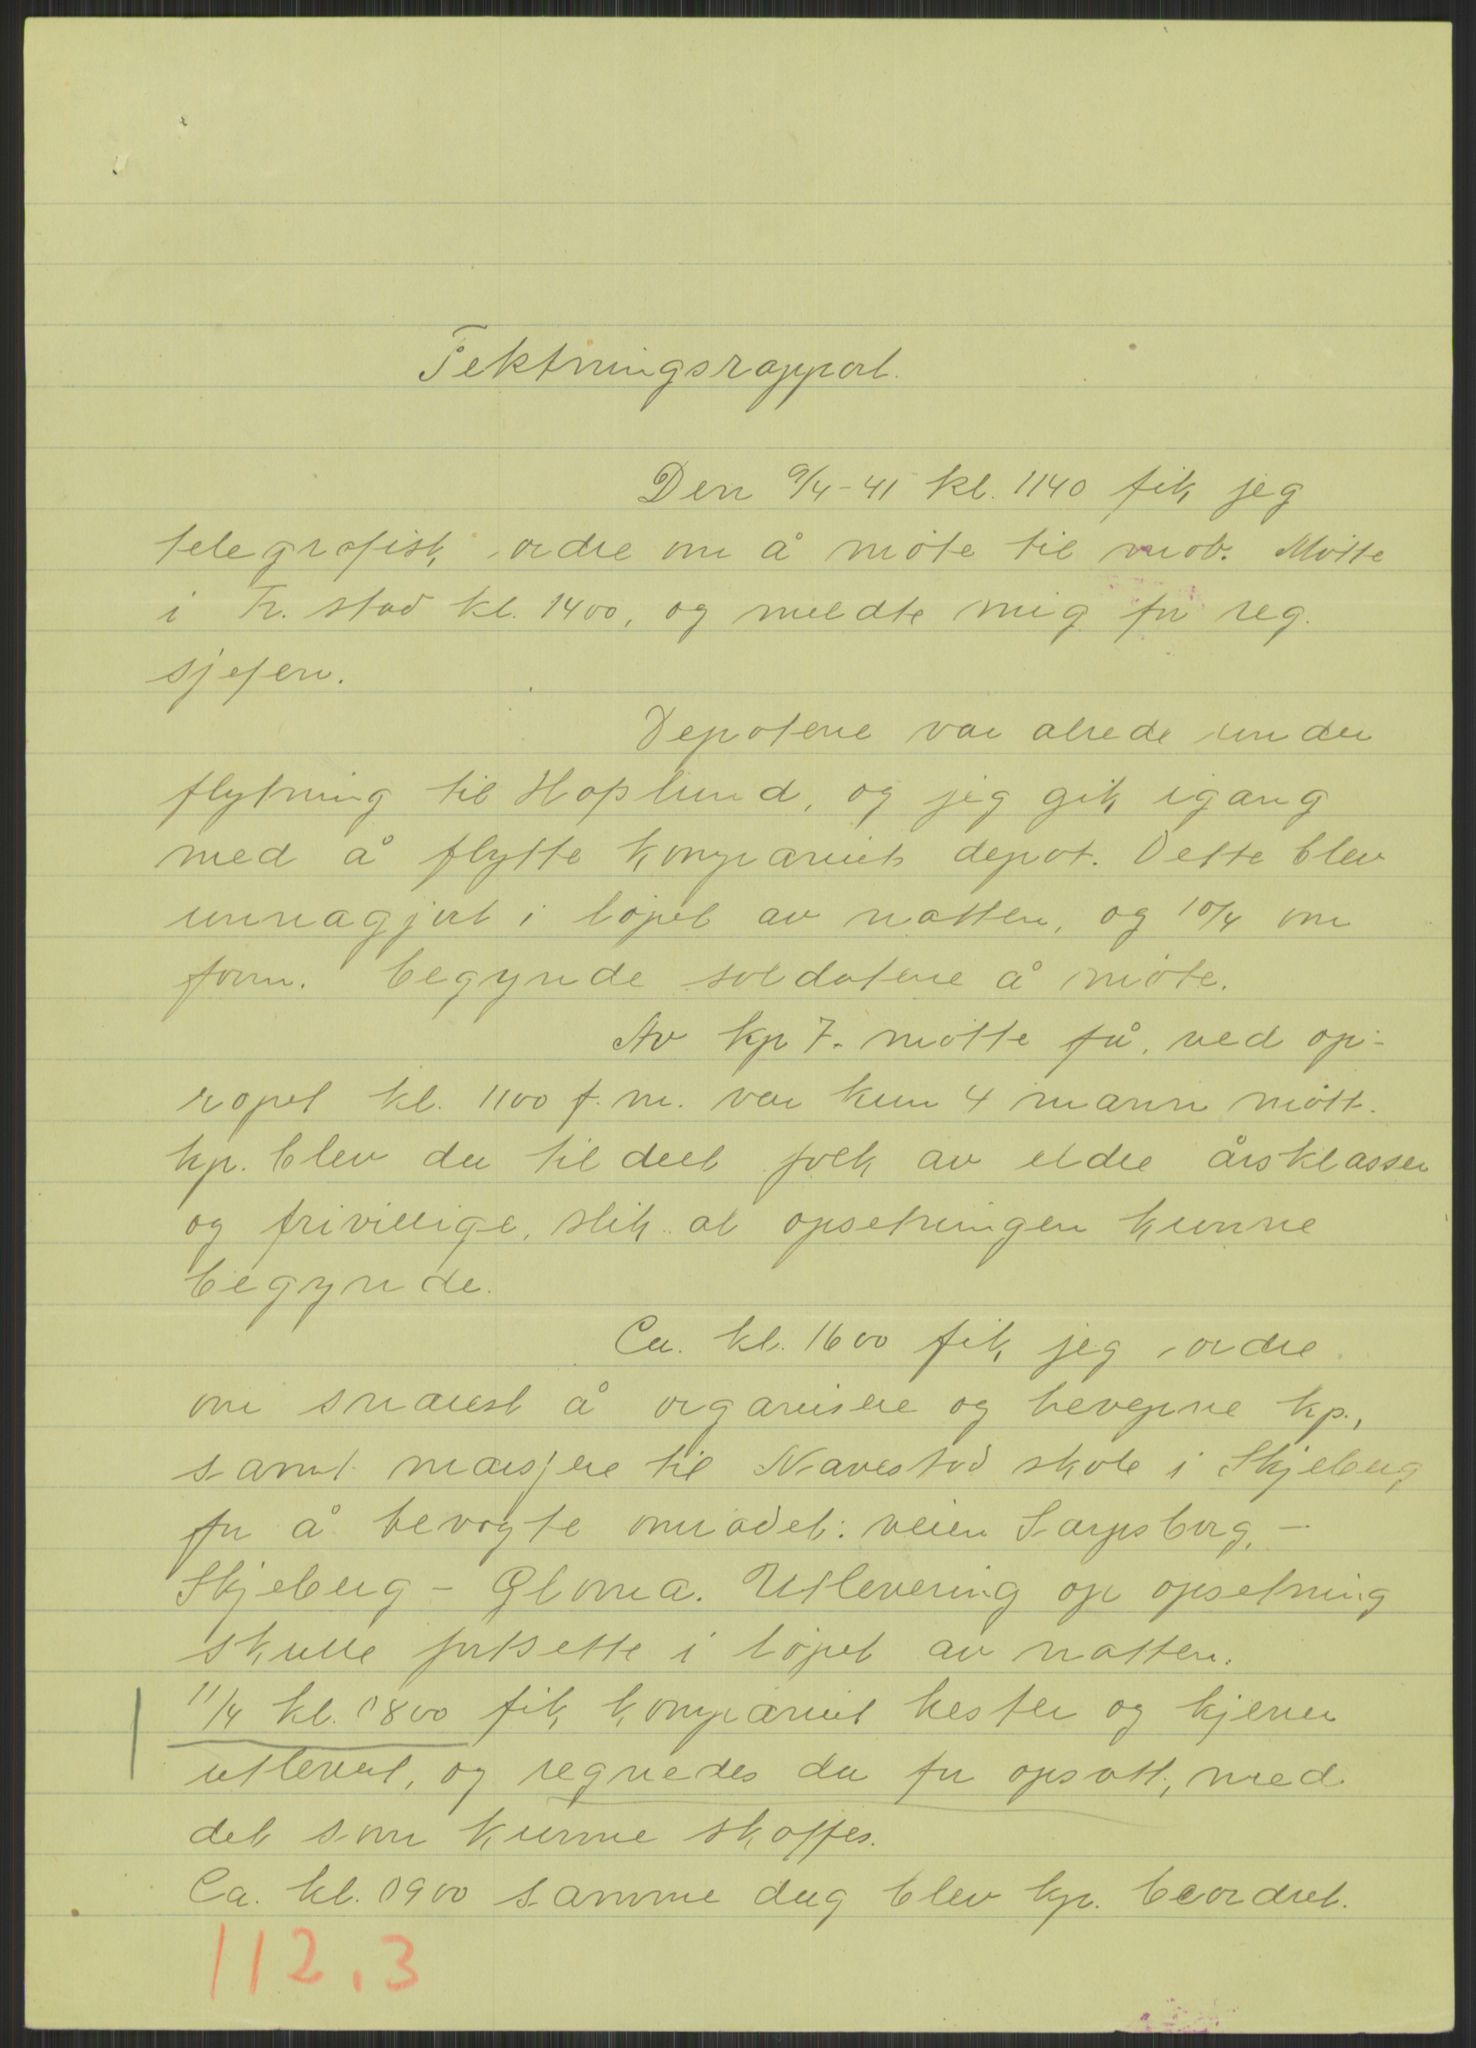 Fektningsrapport.
Den 9/4-41 kl. 1140 fik jeg
telegrafisk ordre om å möte til mob. Mötte
i Fr. stad kl. 1400, og meldte mig for reg.
sjefen.
Depotene var alrede under
flytning til Hoplund, og jeg gik igang
med å flytte kompaniets depot. Dette blev
unnagjort i löpet av natten, og 10/4 om
form. begynde soldatene å möte.
Av kp 7. mötte få, ved op-
ropet kl. 1100 f.m. var kun 4 mann mött.
kp. blev da tildelt folk av eldre årsklasser
og frivillige, slik at opsetningen kunne
begynde.
Ca. kl. 1600 fik jeg ordre
om snarest å organisere og bevepne kp.,
samt marsjere til Navestad skole i Skjeberg
for å bevogte området: veien Sarpsborg, -
Skjeberg - Gloma. Utlevering op opsetning
skulle fortsette i löpet av natten.
11/4 kl. 0800 fik kompaniet hester og kjerrer
utlevert, og regnedes da for opsatt, med
det som kunne skaffes.
Ca. kl. 0900 samme dag blev kp. beordret.
112.3